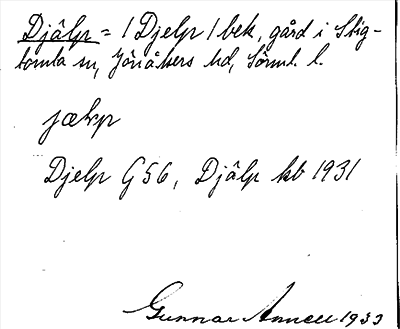 Djälp = / Djelp / bek, gård i Stig-
tomta sn, Jönåkers hd, Sörml. l.
Djelp G56, Djälp kb 1931
Gunnar Annell 1933